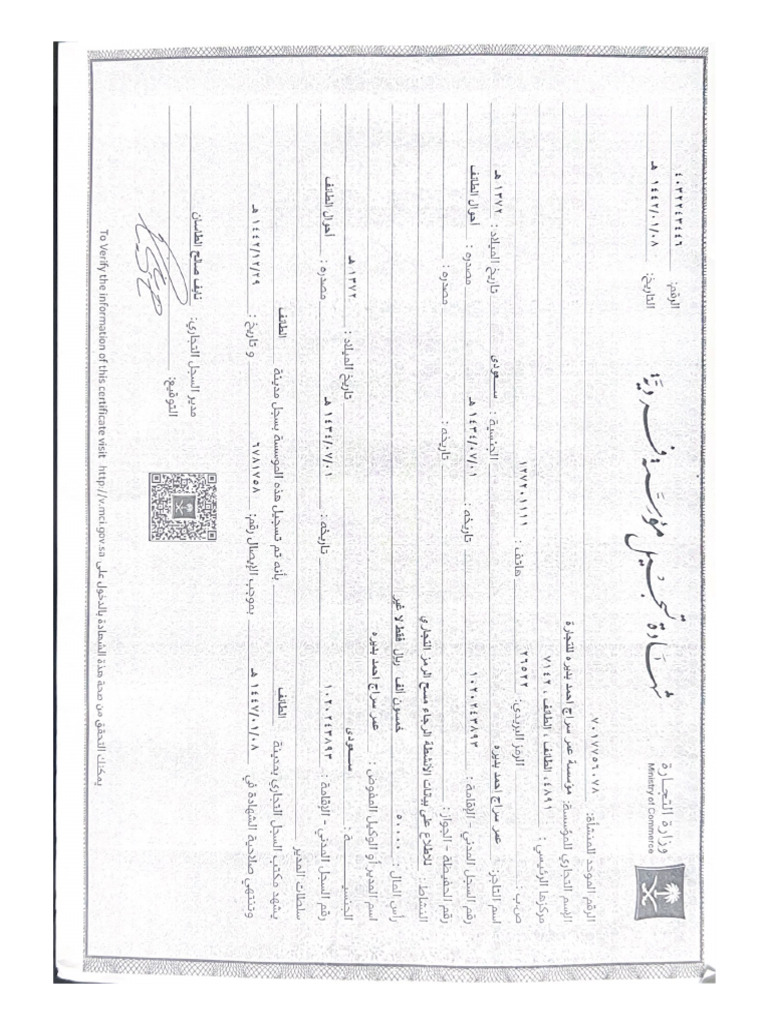 وزارة التجارة
Ministry of Commerce
شهادة تسجيل مؤسسة فردية
الرقم: ٤٠٣٢٢٤٣٤٤٦
التاريخ: ١٤٤٢/٠١/٠٨ هـ
الرقم الموحد للمنشأة: ٧٠١٧٧٥٦٠٧٨
الإسم التجاري للمؤسسة: مؤسسة عمر سراج احمد بديره للتجارة
مركزها الرئيسي: ٤٨٩١، الطائف، الطائف، ٧١٤٢
ص.ب: الرمز البريدي: ٢٦٥٢٢ هاتف: ١٢٧٢٠١١١١
اسم التاجر: عمر سراج احمد بديره الجنسية: سعودى تاريخ الميلاد: ١٣٧٢ هـ
رقم السجل المدني - الإقامة: ١٠٢٠٢٤٣٨٩٣ تاريخه: ١٤٣٤/٠٧/٠١ هـ مصدره: أحوال الطائف
رقم الحفيظة - الجواز: تاريخه: مصدره:
النشاط: للاطلاع على بيانات الأنشطة الرجاء مسح الرمز التجاري
رأس المال: ٥٠٠٠٠ خمسون ألف ريال فقط لا غير
اسم المدير أو الوكيل المفوض: عمر سراج احمد بديره
الجنسية: سعودى تاريخ الميلاد: ١٣٧٢ هـ
رقم السجل المدني - الإقامة: ١٠٢٠٢٤٣٨٩٣ تاريخه: ١٤٣٤/٠٧/٠١ هـ مصدره: أحوال الطائف
سلطات المدير
يشهد مكتب السجل التجاري بمدينة الطائف بأنه تم تسجيل هذه المؤسسة بسجل مدينة الطائف
وتنتهي صلاحية الشهادة في ١٤٤٧/٠١/٠٨ هـ بموجب الإيصال رقم: ٦٧٨١٧٥٨ و تاريخ: ١٤٤٢/١٢/٢٩ هـ
مدير السجل التجاري: نايف صالح الطاسان
التوقيع:
يمكنك التحقق من صحة هذة الشهادة بالدخول على To Verify the information of this certificate visit http://v.mci.gov.sa